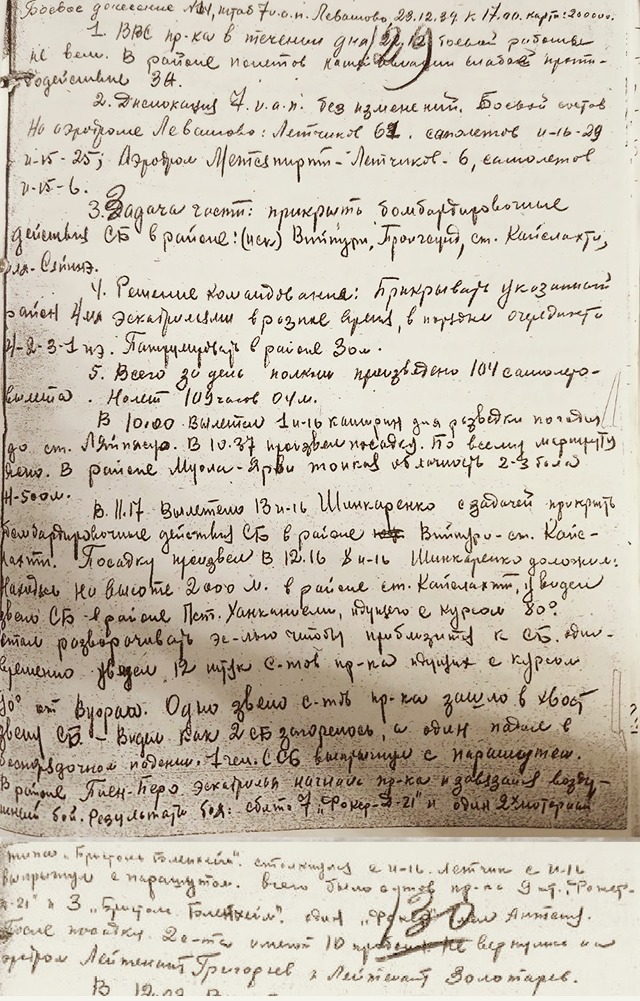 Боевое донесение №41, штаб 7 и.а.п. Левашово, 23.12.39 к 17.00. карта: 200000.
1. ВВС пр-ка в течении дня 23.12 боевой работы
не вели. В районе полетов нашей авиации слабое проти-
водействие ЗА.
2. Дислокация 7. и.а.п. без изменений. Боевой состав
На аэродроме Левашово: Летчиков 61. самолетов и-16-29
и-15-25; Аэродром Метсяпиртт-Летчиков-6, самолетов
и-15-6.
3. Задача части: прикрыть бомбардировочные
действия СБ в районе: (иск) Виипури, ст. Кайслахти,
4. Решение командования: Прикрывать указанный
район 4мя эскадрильями в разное время, в порядке очередности
4-2-3-1 АЭ. Патрулировать в районе 30м.
5. Всего за день полком произведено 104 самолето-
вылета. Налет 109 часов 04м.
В 10.00 Вылетал 1 и-16 для разведки погоды
до ст. В 10.37 произвел посадку. По всему маршруту
ясно. В районе Муола-Ярви тонкая облачность 2-3 бала
Н-500м.
В 11.17 Вылетело 13 и-16 Шинкаренко с задачей прикрыть
бомбардировочные действия СБ в районе Виипури-ст. Кайс-
лахти. Посадку произвел В 12.16 8 и-16 Шинкаренко доложил:
Находясь на высоте 2000 м. в районе ст. Кайслахти, увидел
звено СБ в районе идущего с курсом 80°
стал разворачивать эс-лью чтобы приблизится к СБ. одно-
временно увидел 12 штук с-тов пр-ка идущих с курсом
90° от Одно звено с-тов пр-ка зашло в хвост
звену СБ - Видел как 2 СБ загорелось, а один падал в
беспорядочном падении. 1 чел. с СБ выпрыгнул с парашутом.
В районе эскадрилья нагнала пр-ка и завязался возду-
шный бой. Результаты боя: сбито 7 „Фокер-Д-21" и один 2х моторный
типа „Бристоль Бленхейм". столкнулся с и-16. Летчик с и-16
выпрыгнул с парашутом. всего было с-тов пр-ка 9 шт. „Фокер-
Д-21" и 3 „Бристоль Бленхейм". один „Фокер"
После посадки 2 с-та имеют 10 не вернулись на
аэродром Лейтенант Григорьев и Лейтенант Золотарев.